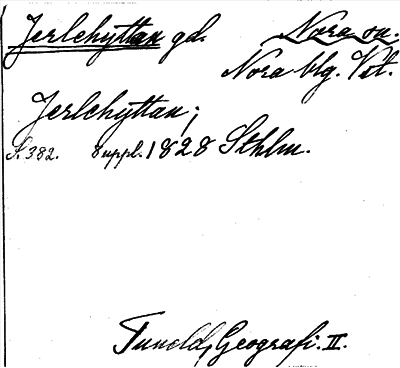 Jerlehyttan gd. Nora sn.
Nora blg. Vstl.
Jerlehyttan;
S. 382. Suppl. 1828 Sthlm.
Tuneld, Geografi. II.